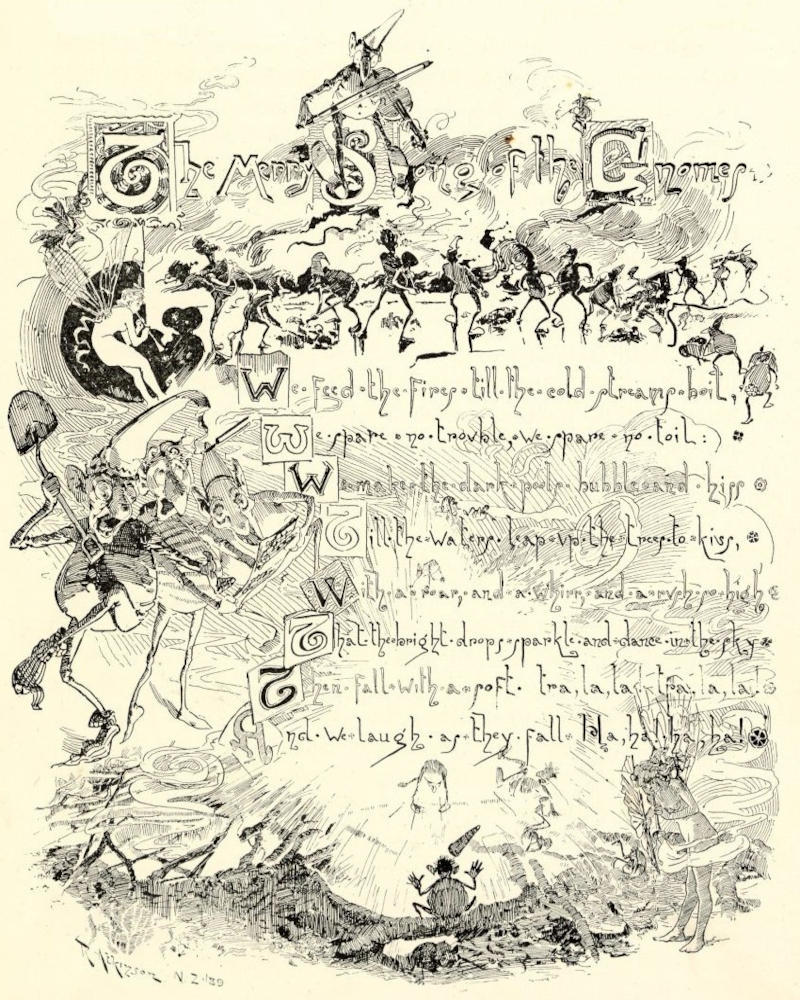 The Merry Song of the Gnomes.
We·feed·the·fires·till·the·cold·streams·boil,
We·spare·no·trouble,·we·spare·no·toil:
We·make·the·dark·pools·bubble·and·hiss
Till·the·waters·leap·up·the·trees·to·kiss,
With·a·roar,·and·a·whirr,·and·a·rush·so·high
That·the·bright·drops·sparkle·and·dance·in·the·sky
Then·fall·with·a·soft·tra,·la,·la,·tra,·la,·la!
And·we·laugh·as·they·fall·Ha,·ha!·ha,·ha!
R. Atkinson N.Z. '89